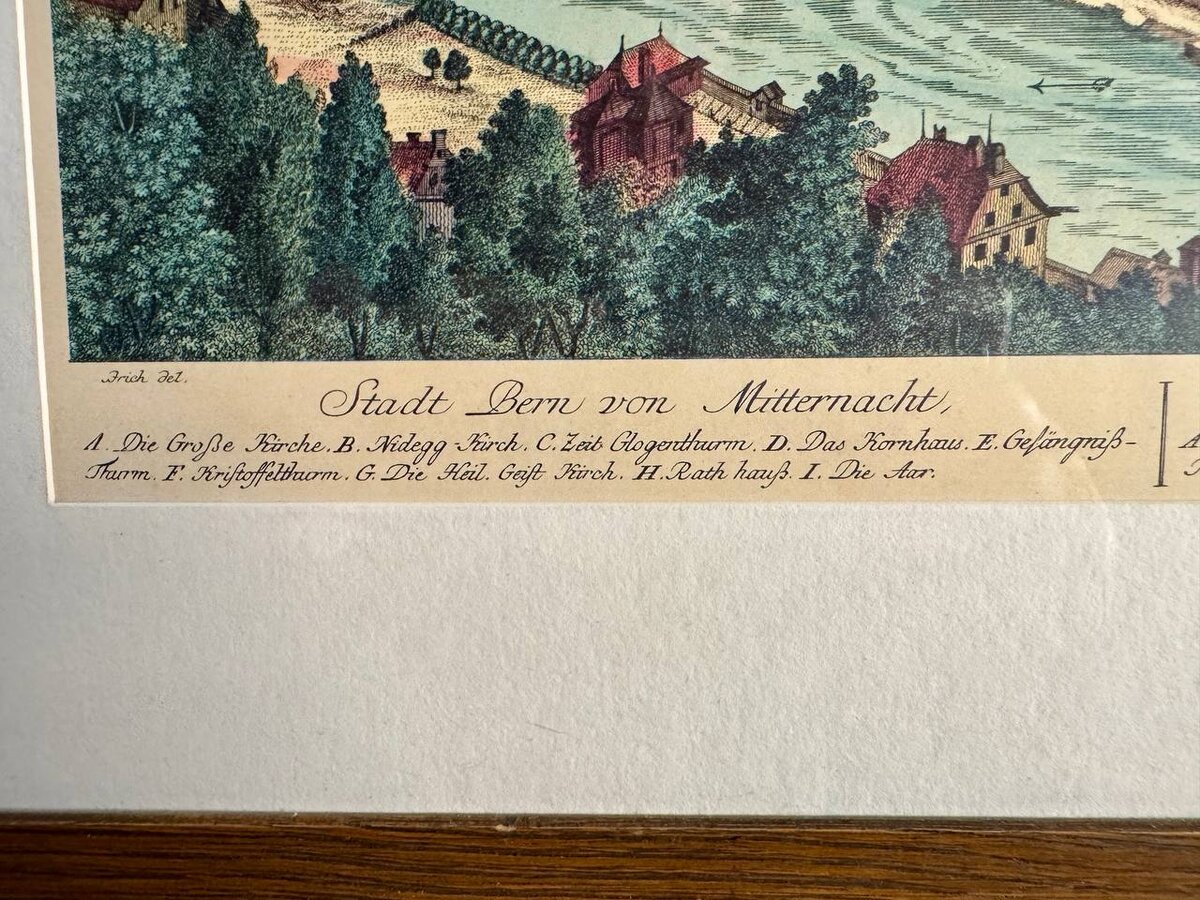 Arich del.
Stadt Bern von Mitternacht,
A. Die Große Kirche. B. Nidegg-Kirch. C. Zeit Glogenthurm. D. Das Kornhaus. E. Gefängniß-
Thurm. F. Kristoffelthurm. G. Die Heil. Geist Kirch. H. Rath hauß. I. Die Aar.